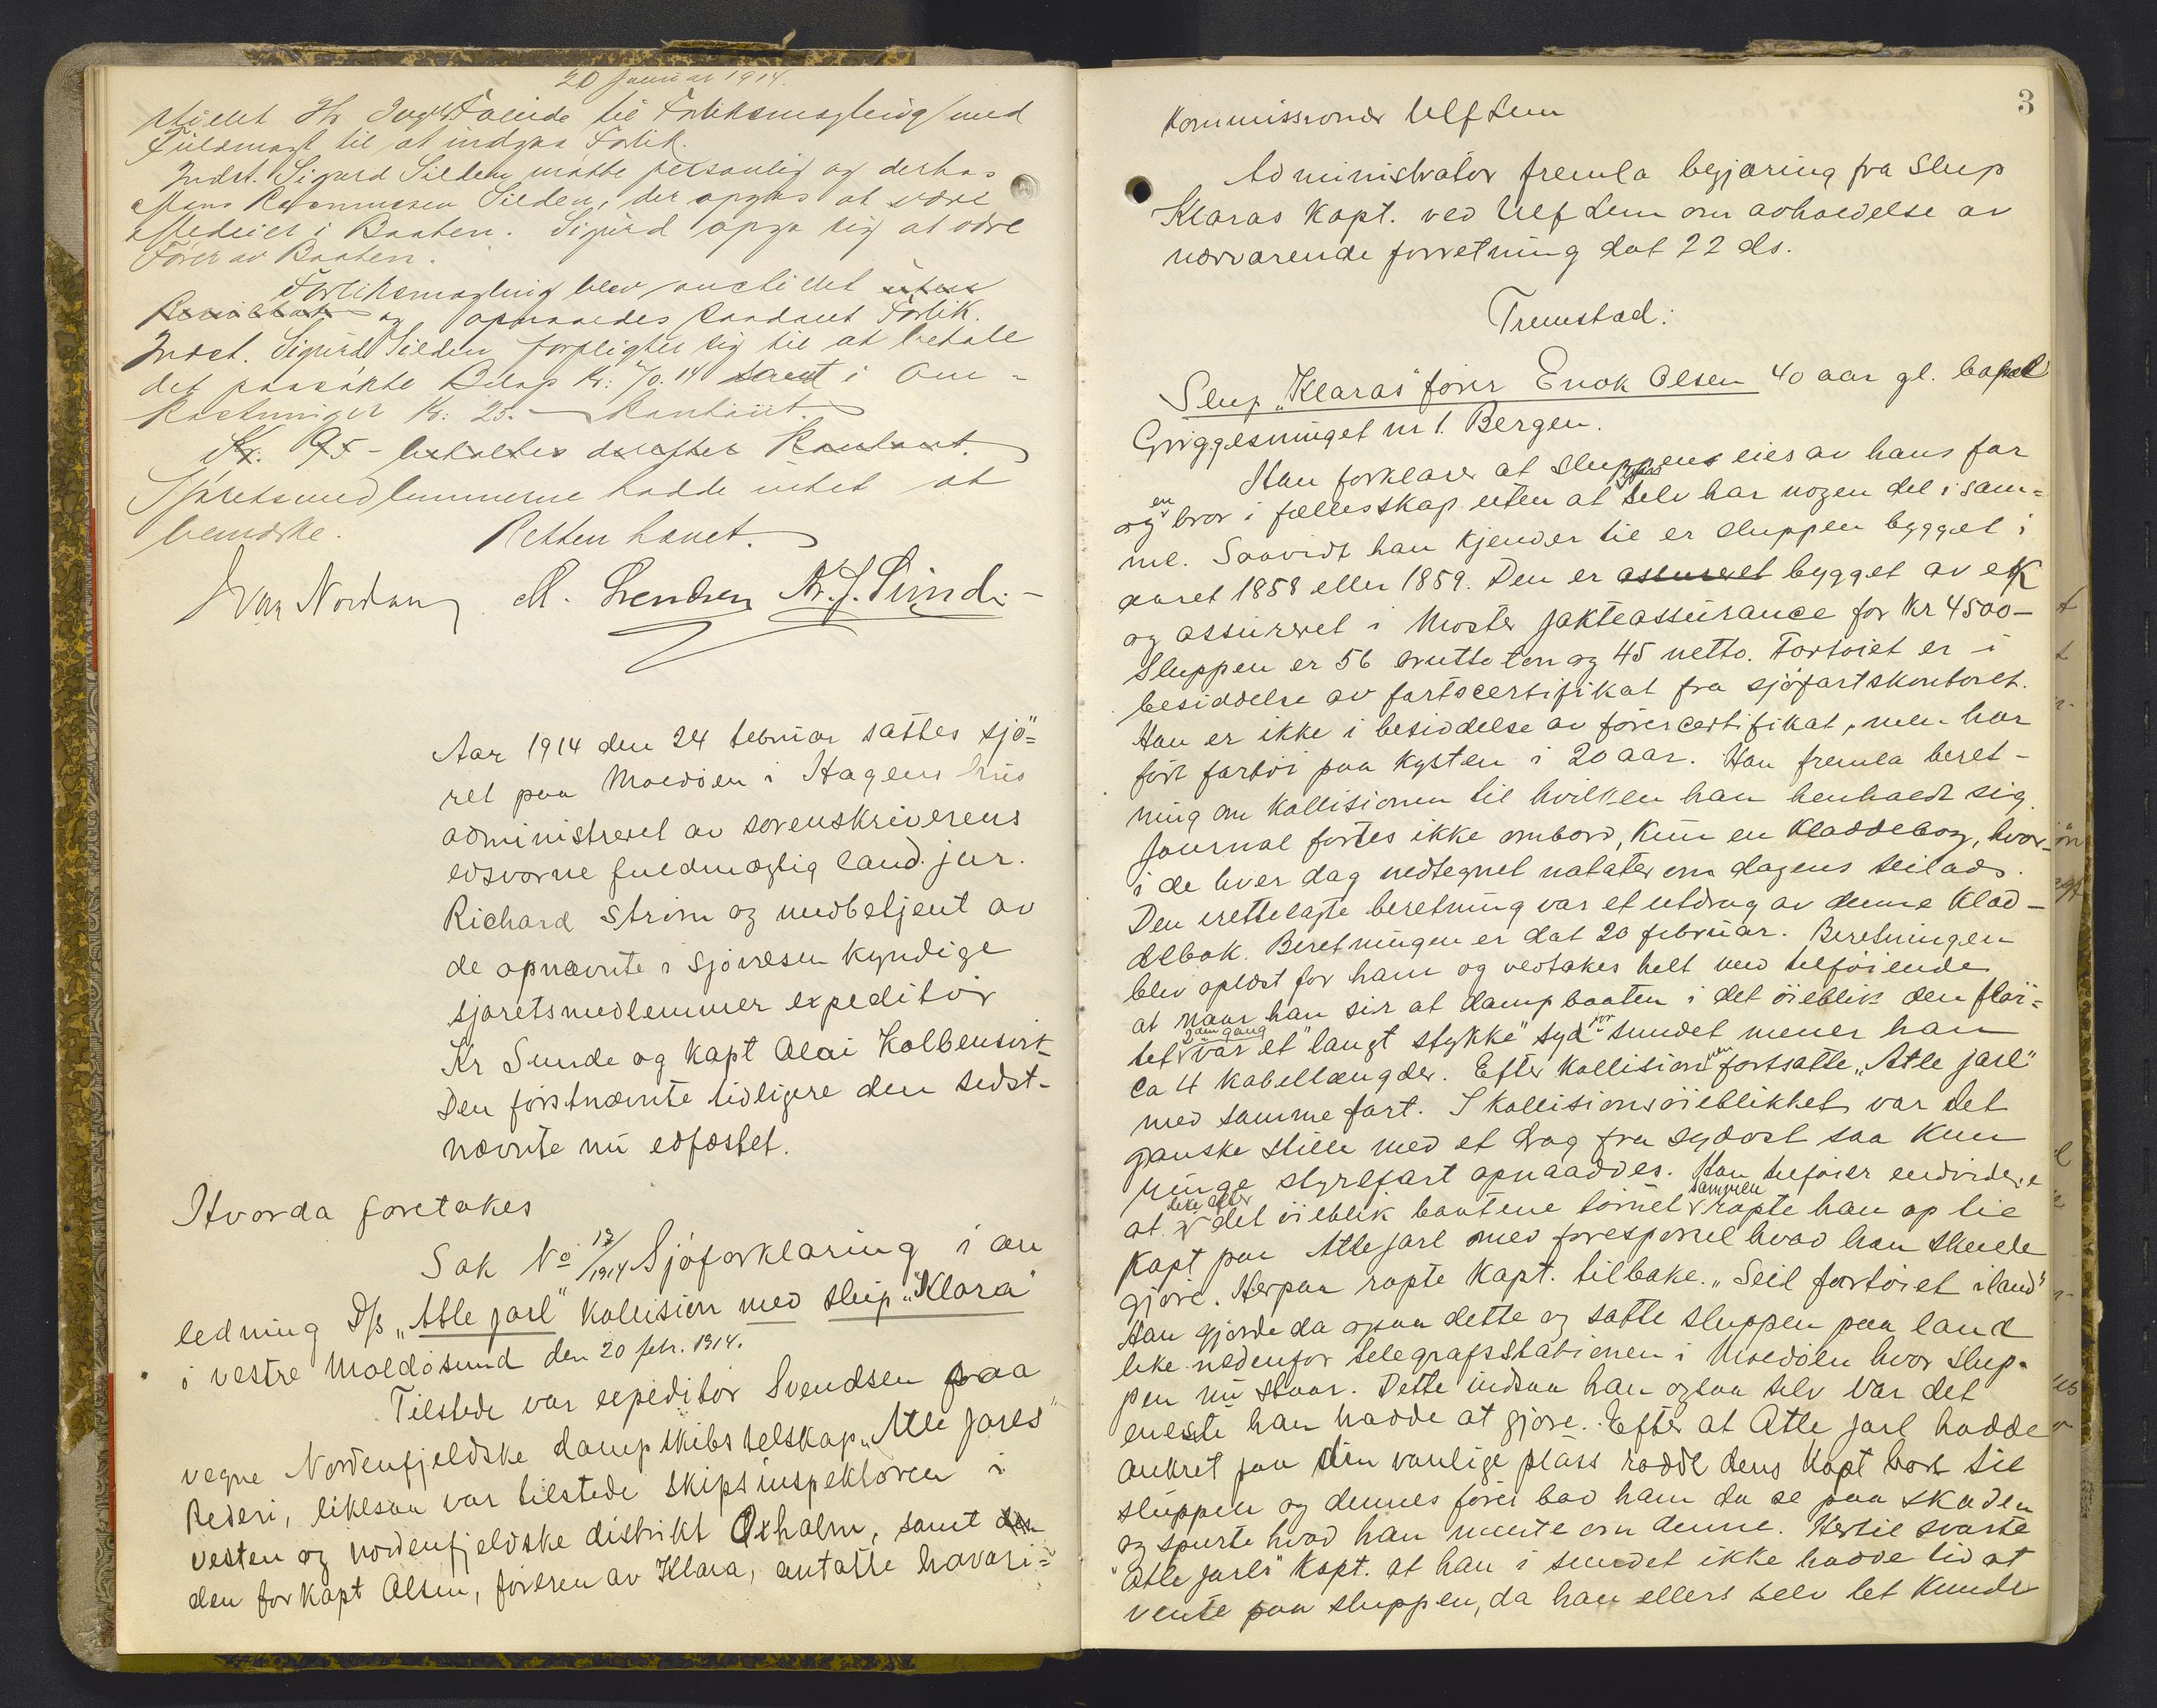 20 Januar 1914.
til Forliksmægling med
Fuldmagt til at indgaa Forlik.
Indst. Sigurd Silden møtte personlig og derhos
Mons Rasmussen Silden, der opgas at være
Medeier i Baaten. Sigurd opga sig at være
Fører av Baaten.
Forliksmægling blev anstillet uten
Resultat og opnaaedes saadant Forlik.
Indst. Sigurd Silden forpligter sig til at betale
det paasøkte Beløp Kr: 70.14 samt i Om-
kostninger Kr: 25.- kontant.
Kr. 95- betaltes derefter kontant.
Sjøretsmedlemmerne hadde intet at
bemerke. Retten hævet.
Ivar Nordang M. Svendsen Kr. J. Sunde
Aar 1914 den 24 februar sattes sjö=
ret paa Moldöen i Hagens hus
administreret av sorenskriverens
edsvorne fuldmægtig cand. jur.
Richard Ström og medbetjent av
de opnævnte i sjövæsen kyndige
sjöretsmedlemmer expeditör
Kr Sunde og Kapt Olai Kolbensvik
Den förstnævnte tidligere den sidst-
nævnte nu edfæstet.
Hvorda foretakes
Sak No 13/1914 Sjöforklaring i an
ledning D/S "Atle Jarl" Kollision med slup "Klara"
i vestre Moldösund den 20 febr. 1914.
Tilstede var expeditör Svendsen paa
vegne Nordenfjeldske dampskibsselskap "Atle Jarls"
Rederi, likesaa var tilstede skipsinspektören i
vesten og nordenfjeldske distrikt Oxholm, samt den
den for Kapt Olsen, föreren av Klara, antatte havari=
3
Kommissionær Ulf Lem
Administrator fremla begjæring fra Slup
Klaras Kapt. ved Ulf Lem om avholdelse av
nærværende forretning dat 22 ds.
Fremstod:
Slup "Klaras" förer Enok Olsen 40 aar gl. bopæl
nr 1. Bergen.
Han forklarer at sluppen eies av hans far
og en bror i fællesskap uten at selv har nogen del i sam=
me. Saavidt han kjender til er sluppen bygget i
aaret 1858 eller 1859. Den er assureret bygget av eK
og assureret i Moster Jakteassurance for Kr 4500-
Sluppen er 56 brutto ton og 45 netto. Fartöiet er i
besiddelse av fartscertifikat fra sjöfartskontoret.
Han er ikke i besiddelse av förercertifikat, men har
fört fartöi paa Kysten i 20 aar. Han fremla beret-
ning om Kollisionen til hvilken han henholdt sig.
Journal förtes ikke ombord, Kun en Kladdebog, hvor-
i de hver dag nedtegnet notater om dagens seilads.
Den irettelagte beretning var et utdrag av denne Klad-
debok. Beretningen er dat 20 februar. Beretningen
blev oplæst for ham og vedtakes helt med tilföiende
at naar han sir at dampbaaten i det öieblik den flöi=
tet 2den gang var et "langt stykke" syd for sundet mener han
ca 4 Kabellængder. Efter Kollisionen fortsatte "Atle Jarl"
med samme fart. I Kollisionsöieblikket var det
ganske stille med et drag fra sydost saa Kun
ringe styrefart opnaaddes. Han tilföier endvidere
at like efter det öieblik baatene törnet sammen ropte han op til
Kapt paa Atle Jarl med forespörsel hvad han skulde
gjöre. Herpaa ropte Kapt. tilbake. "Seil fartöiet iland"
Han gjorde da ogsaa dette og satte sluppen paa land
like nedenfor telegrafstationen i Moldöen hvor slup-
pen nu staar. Dette indsaa han ogsaa selv var det
eneste han hadde at gjöre. Efter at Atle Jarl hadde
ankret paa sin vanlige plass rodde dens Kapt bort til
sluppen og dennes förer bad ham da se paa skaden
og spurte hvad han mente om denne. Hertil svarte
"Atle Jarls" Kapt. at han i sundet ikke hadde tid at
vente paa sluppen, da han ellers selv let Kunde